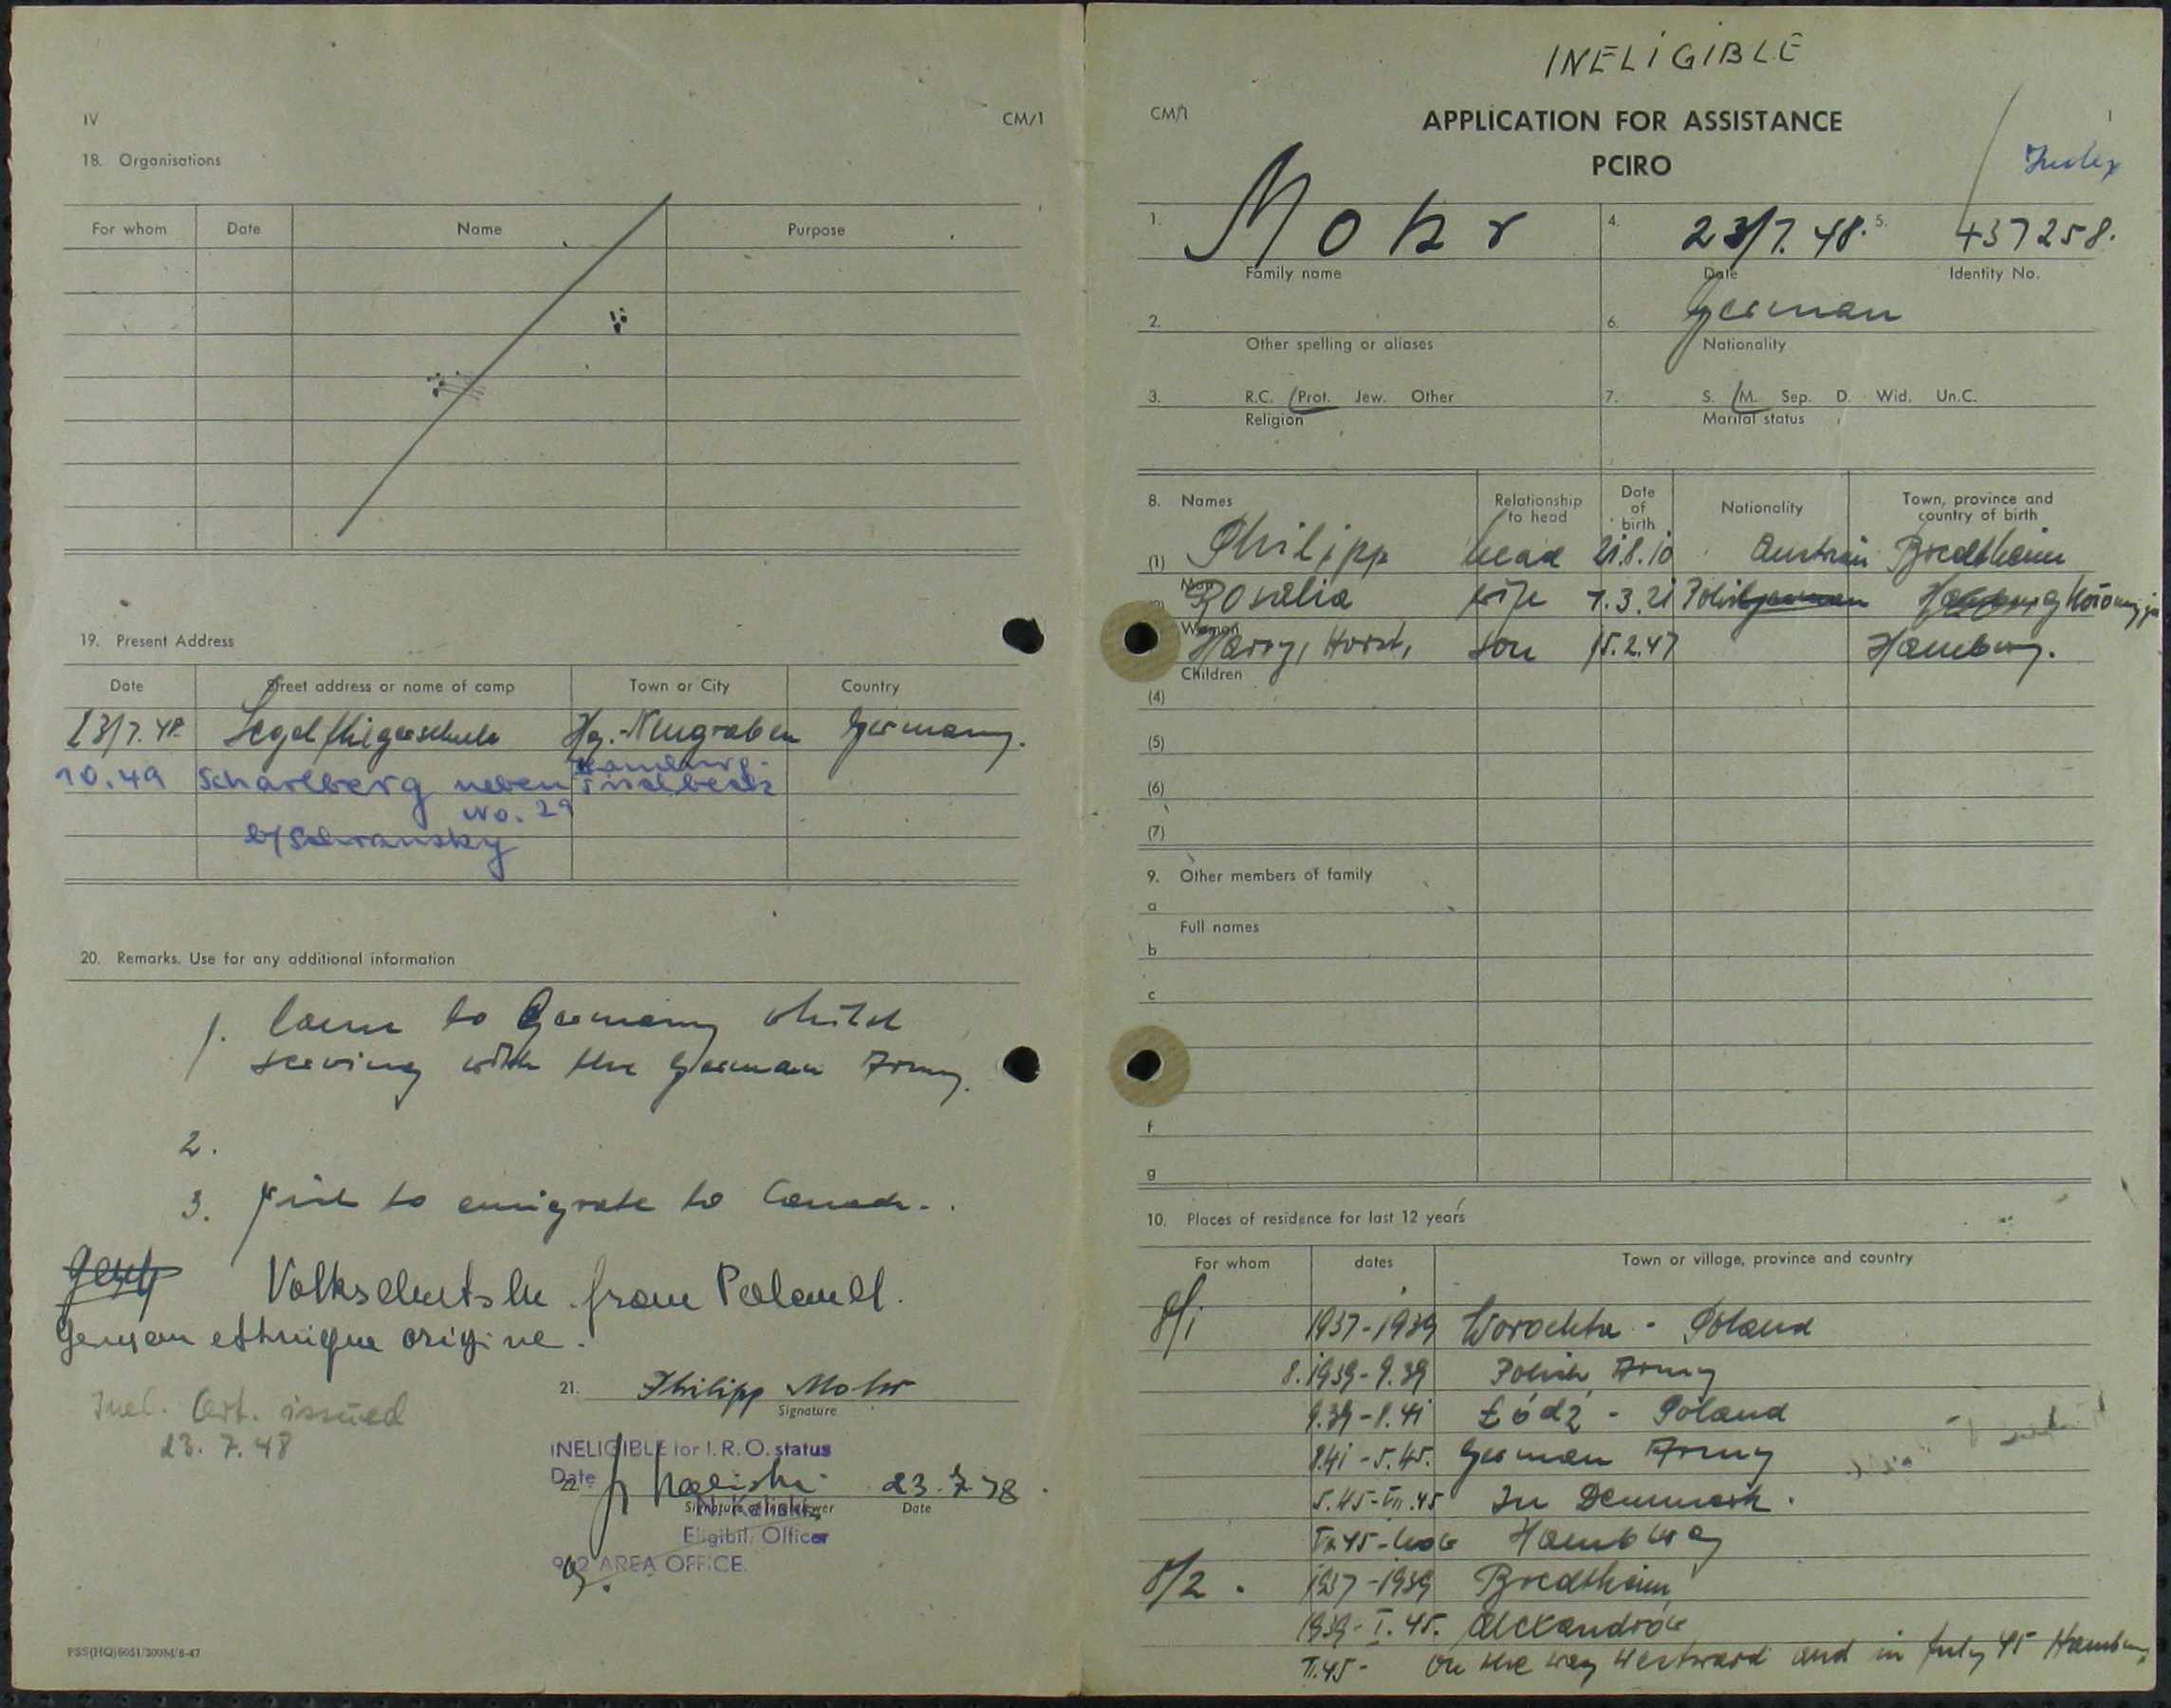 IV
CM/1
18. Organisations
For whom Date Name Purpose
19. Present Address
Date Street address or name of camp Town or City Country
23/7.48. Segelfliegerschule Hg.-Neugraben Germany.
10.49 Scharlberg neben Hamburg-
No. 29
b/Schransky
20. Remarks. Use for any additional information
1. Came to Germany whilst
serving with the German Army.
2.
3. Wish to emigrate to Canada.
Volksdeutshe from Poland.
German ethnique origine.
Inel. Cert. issued
23. 7. 48
21. Philipp Mohr
Signature
INELIGIBLE for I.R.O. status
Date
22. 23.7.48
Signature of Interviewer Date
N. Kaliski
Eligibil. Officer
902 AREA OFFICE
PSS(HQ)6051/300M/8-47
INELIGIBLE
CM/1
APPLICATION FOR ASSISTANCE
PCIRO
I
Index
1. Mohr 4. 23/7.48. 5. 437258.
Family name Date Identity No.
2. 6. German
Other spelling or aliases Nationality
3. R.C. Prot. Jew. Other 7. S. M. Sep. D. Wid. Un.C.
Religion Marital status
8. Names Relationship to head Date of birth Nationality Town, province and country of birth
(1) Philipp head 21.8.10 Austrian Bredtheim
Man
Rosalia wife 1.3.21 Polish german Kołomyja
Woman
Harry, Horst, son 15.2.47 Hamburg.
Children
(4)
(5)
(6)
(7)
9. Other members of family
a
Full names
b
c
f
g
10. Places of residence for last 12 years
For whom dates Town or village, province and country
8/1 1937-1939 Worochta - Poland
8.1939-9.39 Polish Army
9.39-8.41 Łódź - Poland
8.41-5.45. German Army
5.45-VII.45 In Denmark.
VII.45-now Hamburg
8/2. 1937-1939 Bredtheim
1939-I.45. Alexandrów
II.45- On the way westward and in July 45 Hamburg